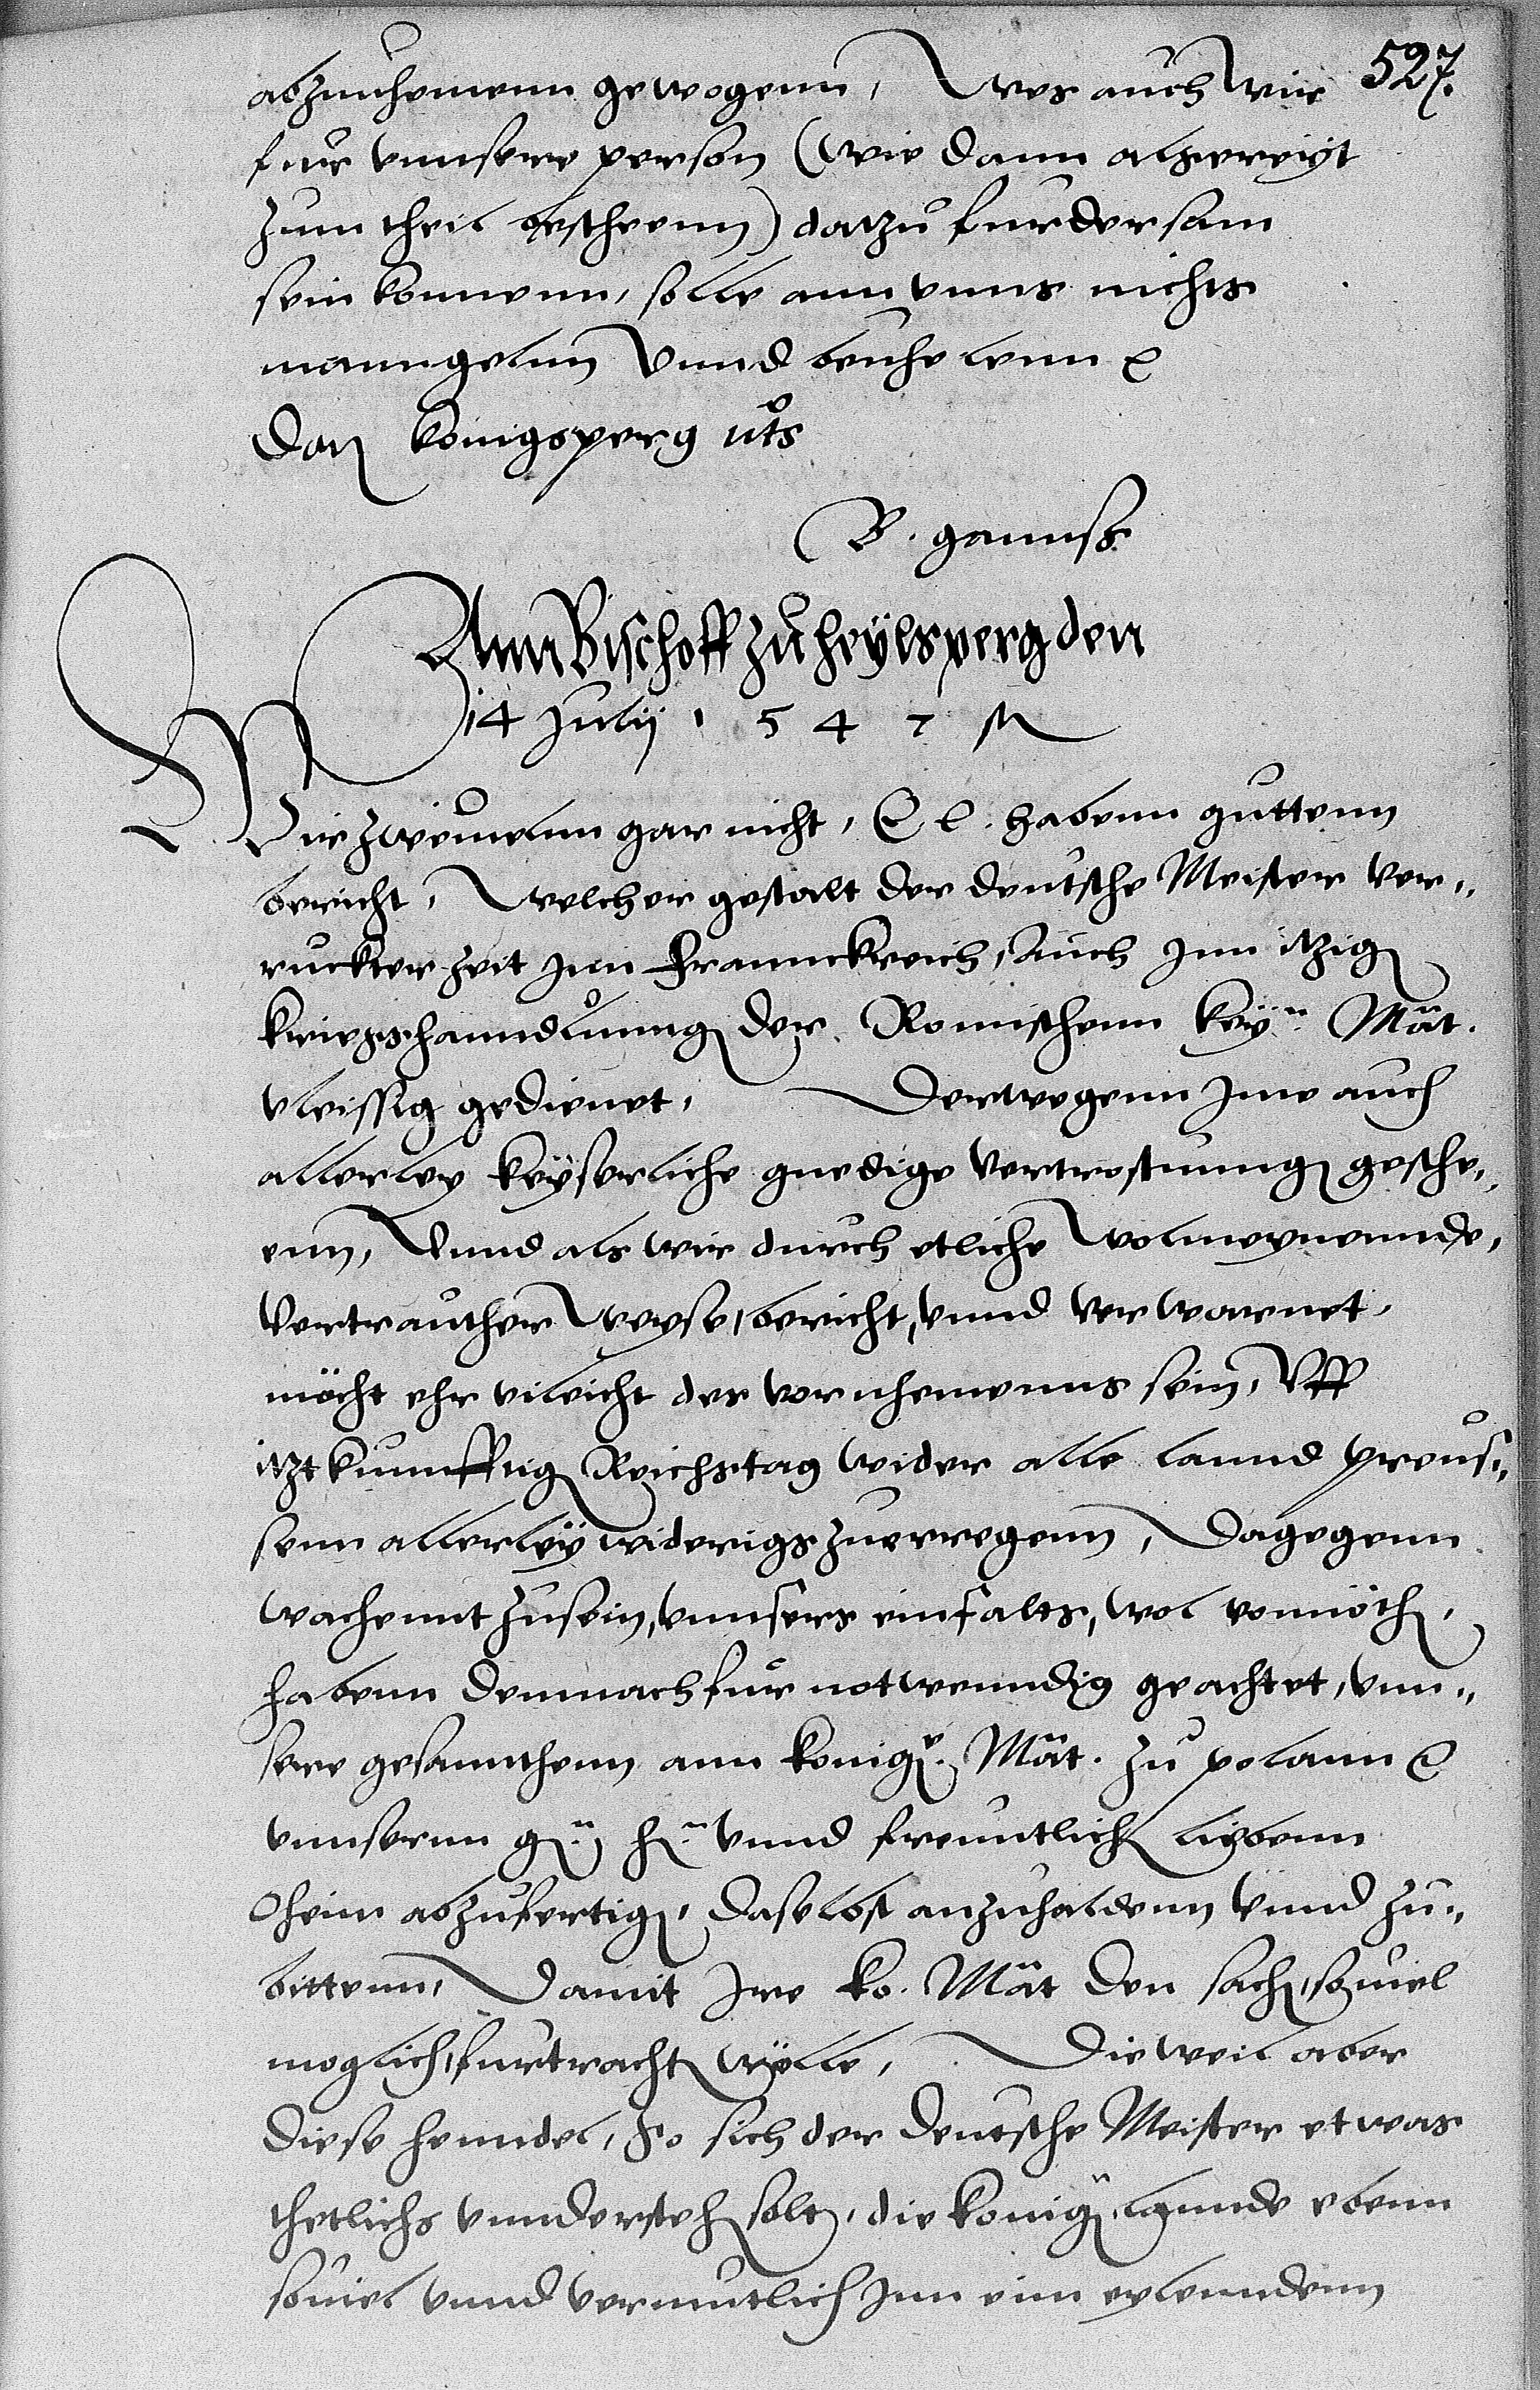 527.
abzunhemenn gewogenn, Wes auch wir
fur vnnsere person (wie dann albereyt
zum theil bescheenn) darzu furdersam
sein konnenn, solle ann vnns nichts
manngelnn Vnnd beuhelenn ꝛc
Datum Konigsperg uts
B. gannss
Ann Bischoff zu heylsperg den
14 Julij 1547
Wir zweiuelnn gar nicht, E l. habenn guttenn
bericht, welcher gestalt der deutsche Meister ver„
ruckter zeit jnn Franncckreich, auch jnn itzig
kriegshanndlunng der Romischenn key.n Mät.
vleissig gedienet, Derwegenn jme auch
allerley keyserliche gnedige vertrostunng gesche„
enn, Vnnd als wir durch etliche wolmeynennde,
vertrauther weyse, bericht, vnnd verwarnet,
möcht ehr vileicht des vornhemenns sein, Vff
itzt kunnfftig Reichstag wider alle lannd preus„
senn allerley widerigs zuerregenn, Dagegenn
wachennt zusein, vnnsers einfalts, wol vonnöth,
habenn demnach fur notwenndig geachtet, vnn„
sere gesannthenn ann konig.r Mät. zu polann ꝛc
vnnserm g.n h.n vnnd freuntlich liebenn
Oheim abzufertig, daselbst anzuhaldenn vnnd zu„
bittenn, Damit jre ko. Mät den sach, souiel
moglich, furtracht wölle, Dieweil aber
diese henndel, so sich der deutsche Meister etwas
thetlichs vnndersteh solt, die konig. lannde ebenn
souiel vnnd vermutlich jnn ein eylenndenn